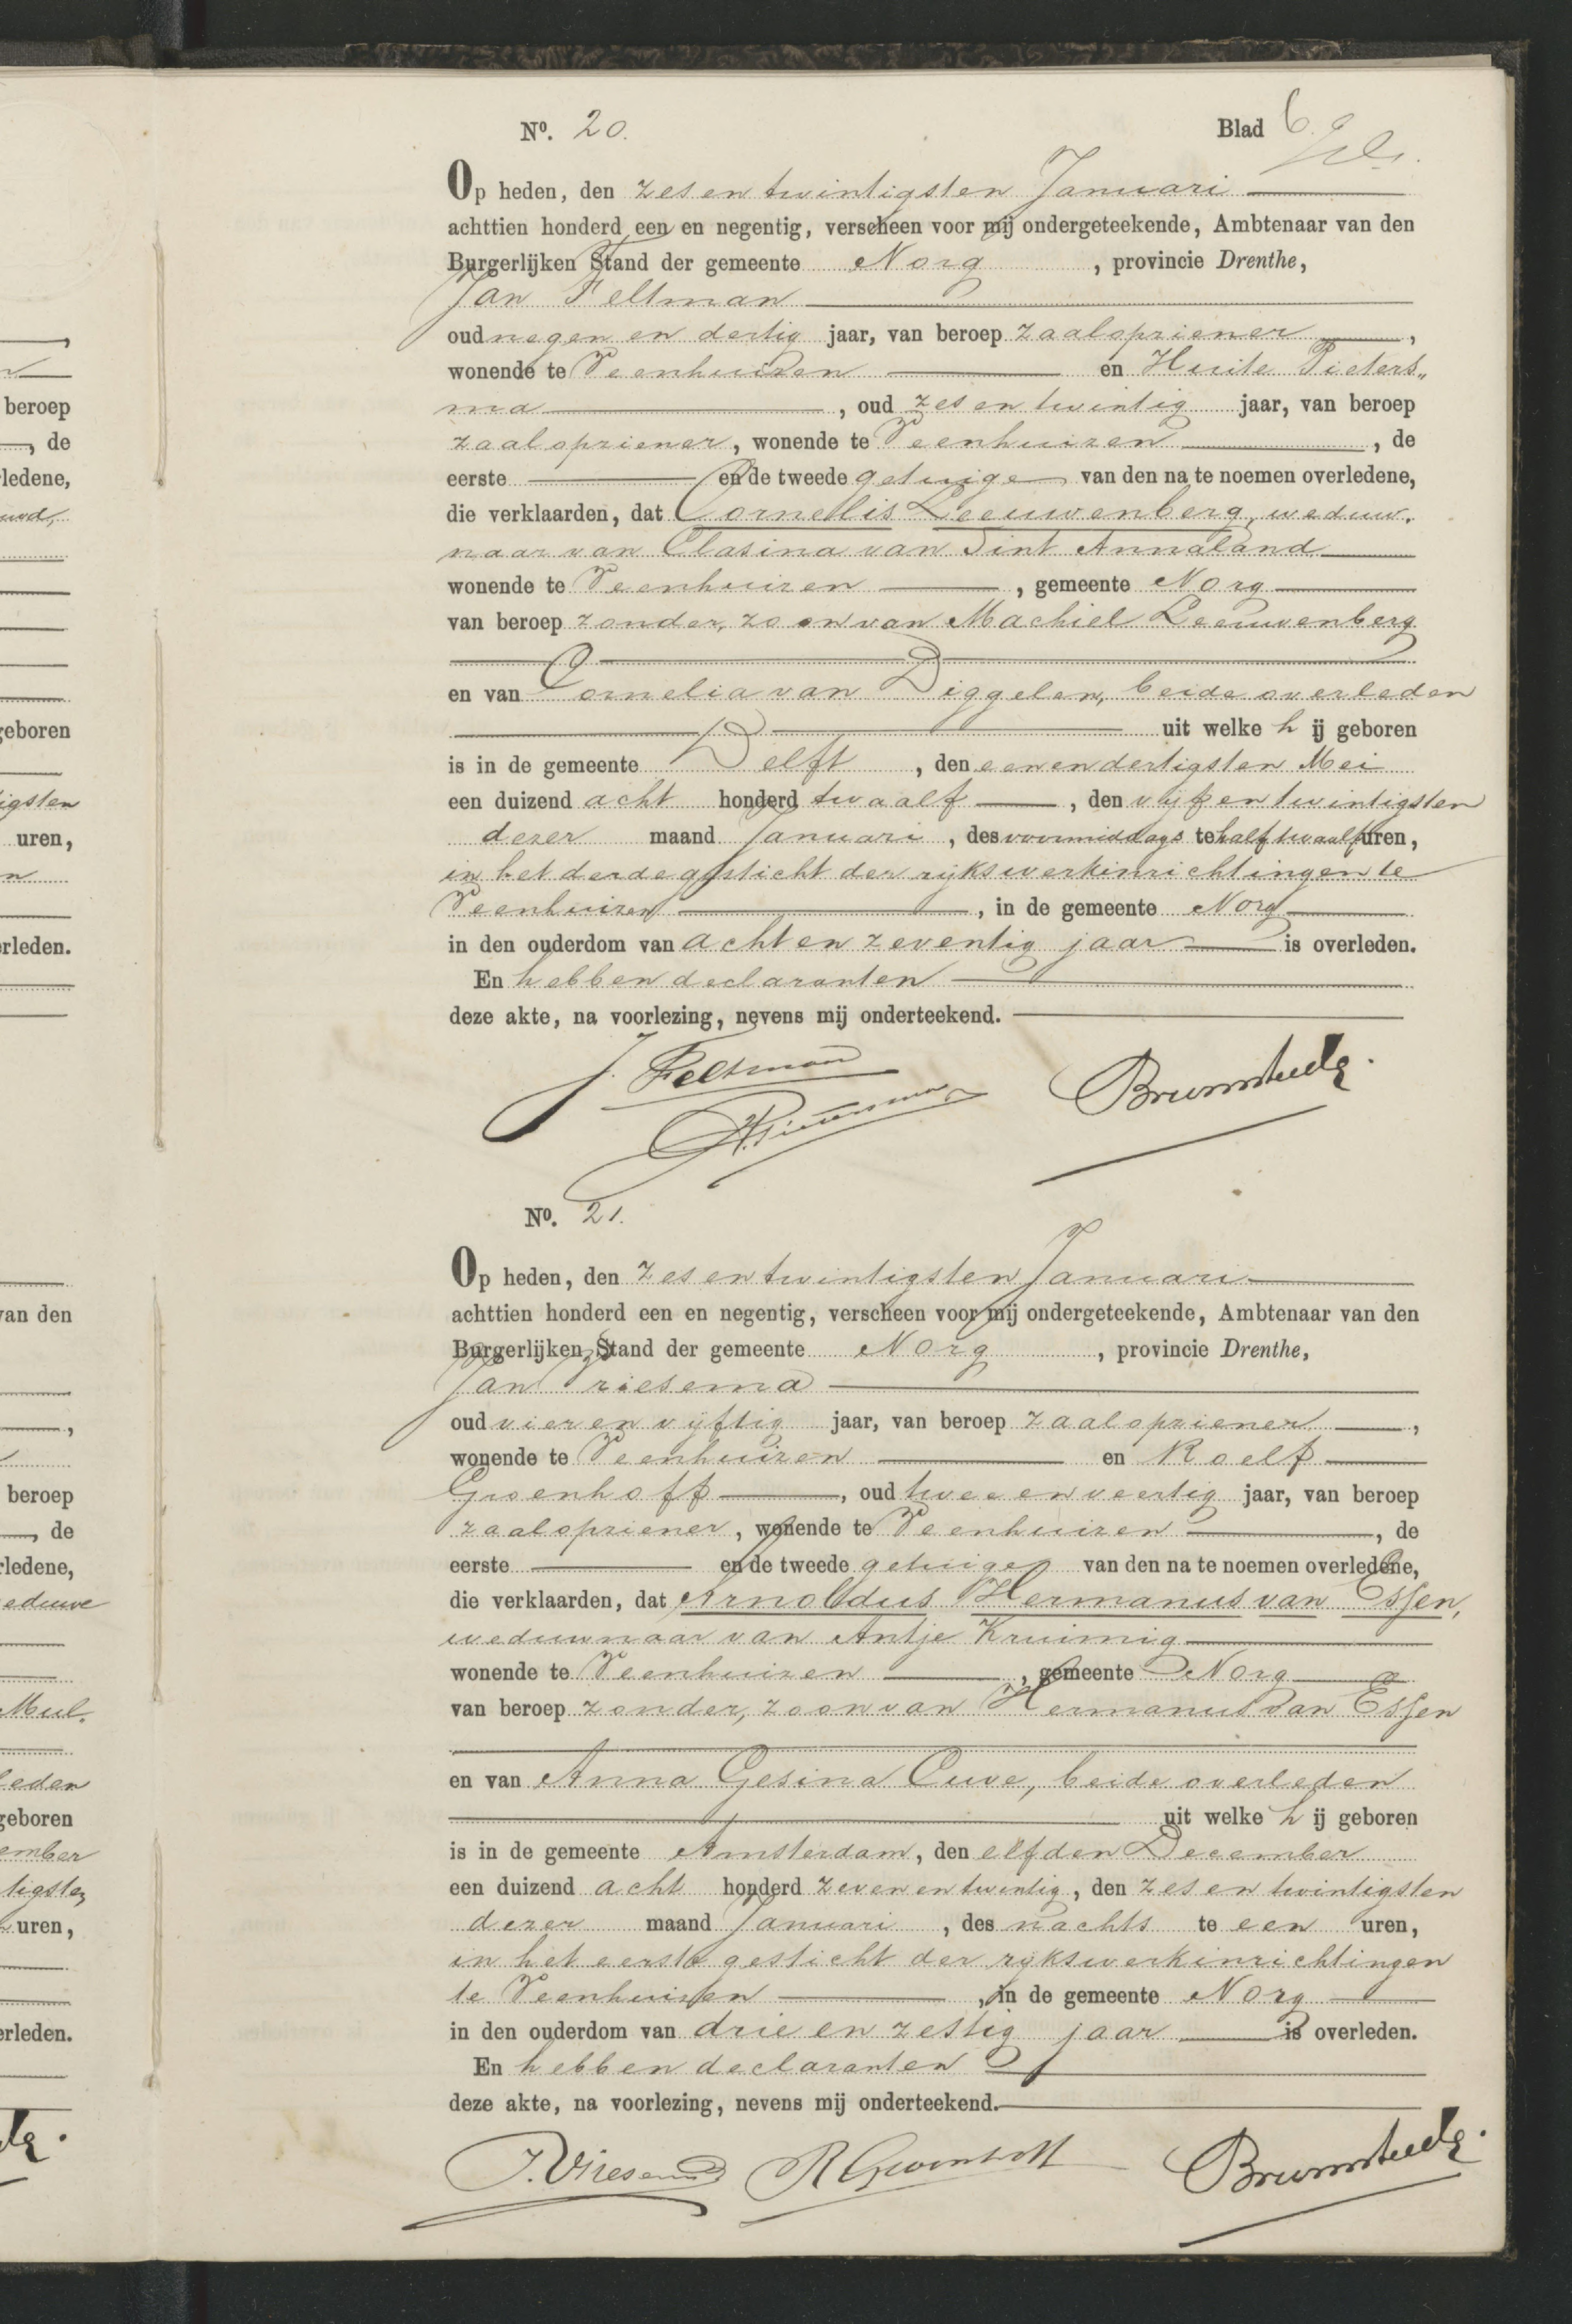 beroep
de
ledene,
geboren
igsten
uren,
erleden.
van den
beroep
de
ledene,
eduwe
Mul.
leden
geboren
ember
tigsten
uren,
erleden.
No. 20.
Blad 6.
Op heden, den zes en twintigsten Januari
achttien honderd een en negentig, verscheen voor mij ondergeteekende, Ambtenaar van den
Burgerlijken Stand der gemeente Norg, provincie Drenthe,
Jan Feltman
oud negen en dertig jaar, van beroep zaalopziener,
wonende te Veenhuizen en Huite Pieters„
ma, oud zes en twintig jaar, van beroep
zaalopziener, wonende te Veenhuizen, de
eerste en de tweede getuige van den na te noemen overledene,
die verklaarden, dat Cornellis Leeuwenberg, weduw.
naar van Clasina van Sint Annaland
wonende te Veenhuizen, gemeente Norg
van beroep zonder, zoon van Machiel Leeuwenberg
en van Cornelia van Diggelen, beide overleden
uit welke h ij geboren
is in de gemeente Delft, den eenendertigsten Mei
een duizend acht honderd twaalf, den vijf en twintigsten
dezer maand Januari, des voormiddags te half twaalf uren,
in het derde gesticht der rijkswerkinrichtingen te
Veenhuizen, in de gemeente Norg
in den ouderdom van acht en zeventig jaar is overleden.
En hebben declaranten
deze akte, na voorlezing, nevens mij onderteekend.
J. Feltman
H. Pietersma
No. 21.
Op heden, den zes en twintigsten Januari
achttien honderd een en negentig, verscheen voor mij ondergeteekende, Ambtenaar van den
Burgerlijken Stand der gemeente Norg, provincie Drenthe,
Jan Vriesema
oud vier en vijftig jaar, van beroep zaalopziener,
wonende te Veenhuizen en Roelf
Groenhoff, oud twee en veertig jaar, van beroep
zaalopziener, wonende te Veenhuizen, de
eerste en de tweede getuige van den na te noemen overledene,
die verklaarden, dat Arnoldus Hermanus van Essen,
weduwnaar van Antje Kruimig
wonende te Veenhuizen, gemeente Norg
van beroep zonder, zoon van Hermanus van Essen
en van Anna Gesina Cuve, beide overleden
uit welke h ij geboren
is in de gemeente Amsterdam, den elfden December
een duizend acht honderd zeven en twintig, den zes en twintigsten
dezer maand Januari, des nachts te een uren,
in het eerste gesticht der rijkswerkinrichtingen
te Veenhuizen, in de gemeente Norg
in den ouderdom van drie en zestig jaar is overleden.
En hebben declaranten
deze akte, na voorlezing, nevens mij onderteekend.
J. Vriesema R Groenhoff